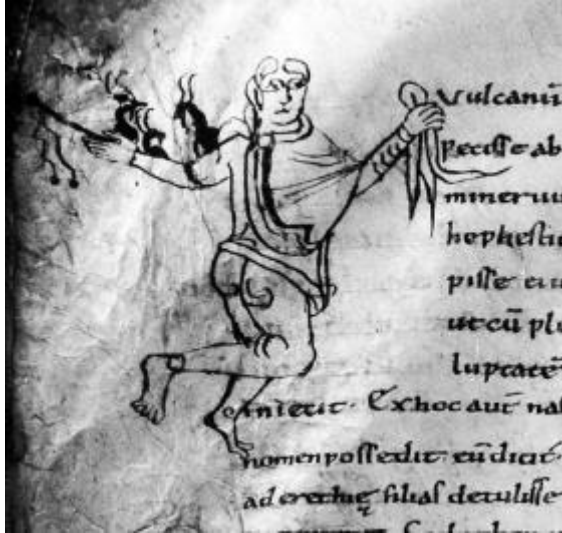 Vulcaniū
fecisse ab
mineruā
hephesti
pisse eiu
ut cū plu
luptatē
omiecit. Ex hoc aut nas
nomen possedit. eū dicit
ad erethię filias detulisse